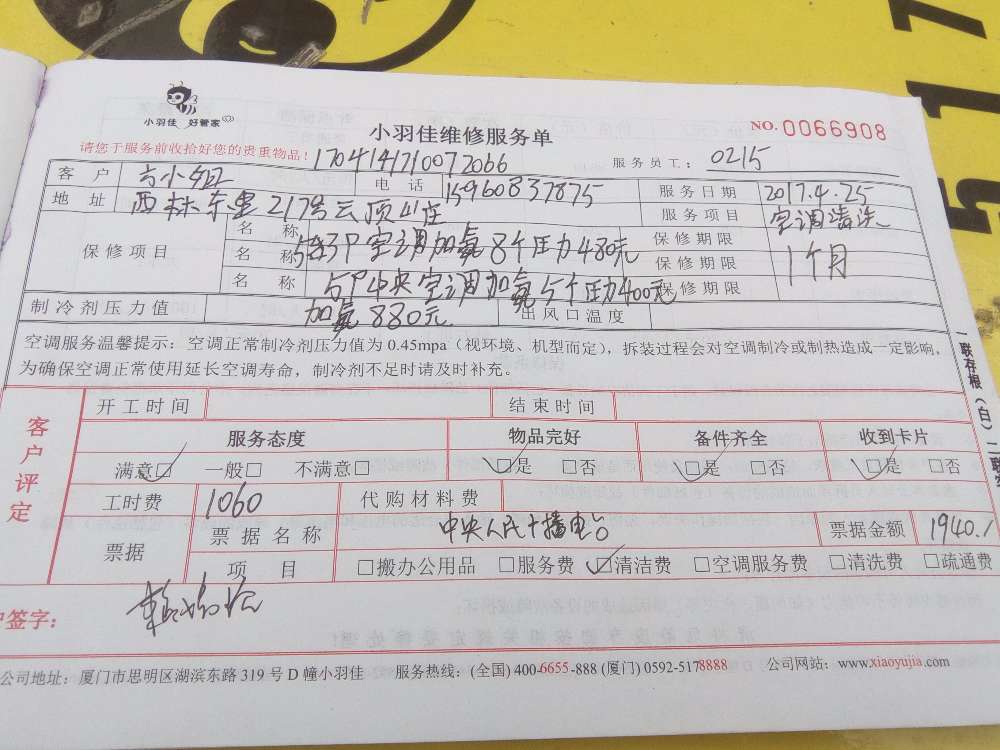 5117
小羽佳 好管家
小羽佳维修服务单
NO. 0066908
请您于服务前收拾好您的贵重物品!
170414710072066
服务员工: 0215
客户 方小姐 电话 15960837875 服务日期 2017.4.25
地址 西林东里217号云顶山庄 服务项目 空调清洗
保修项目
名称 3P空调加氟8个压力480元 保修期限
名称 5P中央空调加氟5个压力400元 保修期限 1个月
名称 保修期限
制冷剂压力值 加氟880元 出风口温度
空调服务温馨提示: 空调正常制冷剂压力值为 0.45mpa (视环境、机型而定), 拆装过程会对空调制冷或制热造成一定影响,
为确保空调正常使用延长空调寿命, 制冷剂不足时请及时补充。
一联存根(白)二联
客户评定
开工时间 结束时间
服务态度 物品完好 备件齐全 收到卡片
满意☑ 一般□ 不满意□ ☑是 □否 ☑是 □否 ☑是 □否
工时费 1060 代购材料费
票据 票据名称 中央人民广播电台 票据金额 1940.
项目 □搬办公用品 □服务费 ☑清洁费 □空调服务费 □清洗费 □疏通费
户签字:
公司地址: 厦门市思明区湖滨东路 319 号 D 幢小羽佳 服务热线: (全国) 400-6655-888 (厦门) 0592-5178888 公司网站: www.xiaoyujia.com